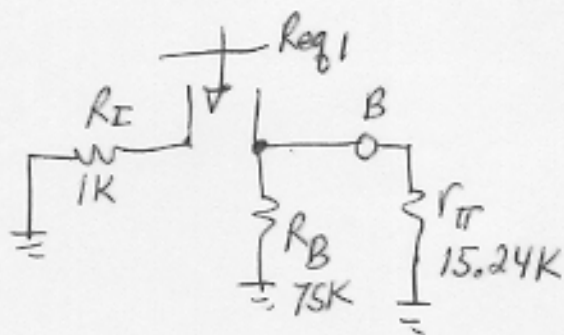 Req1
B
RI
1K
RB
75K
rπ
15.24K